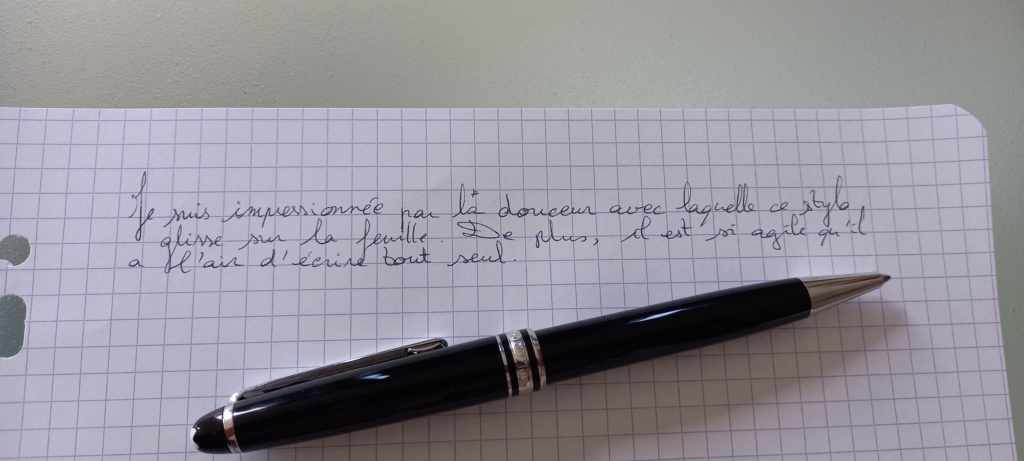 Je suis impressionnée par la douceur avec laquelle ce stylo
glisse sur la feuille. De plus, il est si agile qu'il
a l'air d'écrire tout seul.